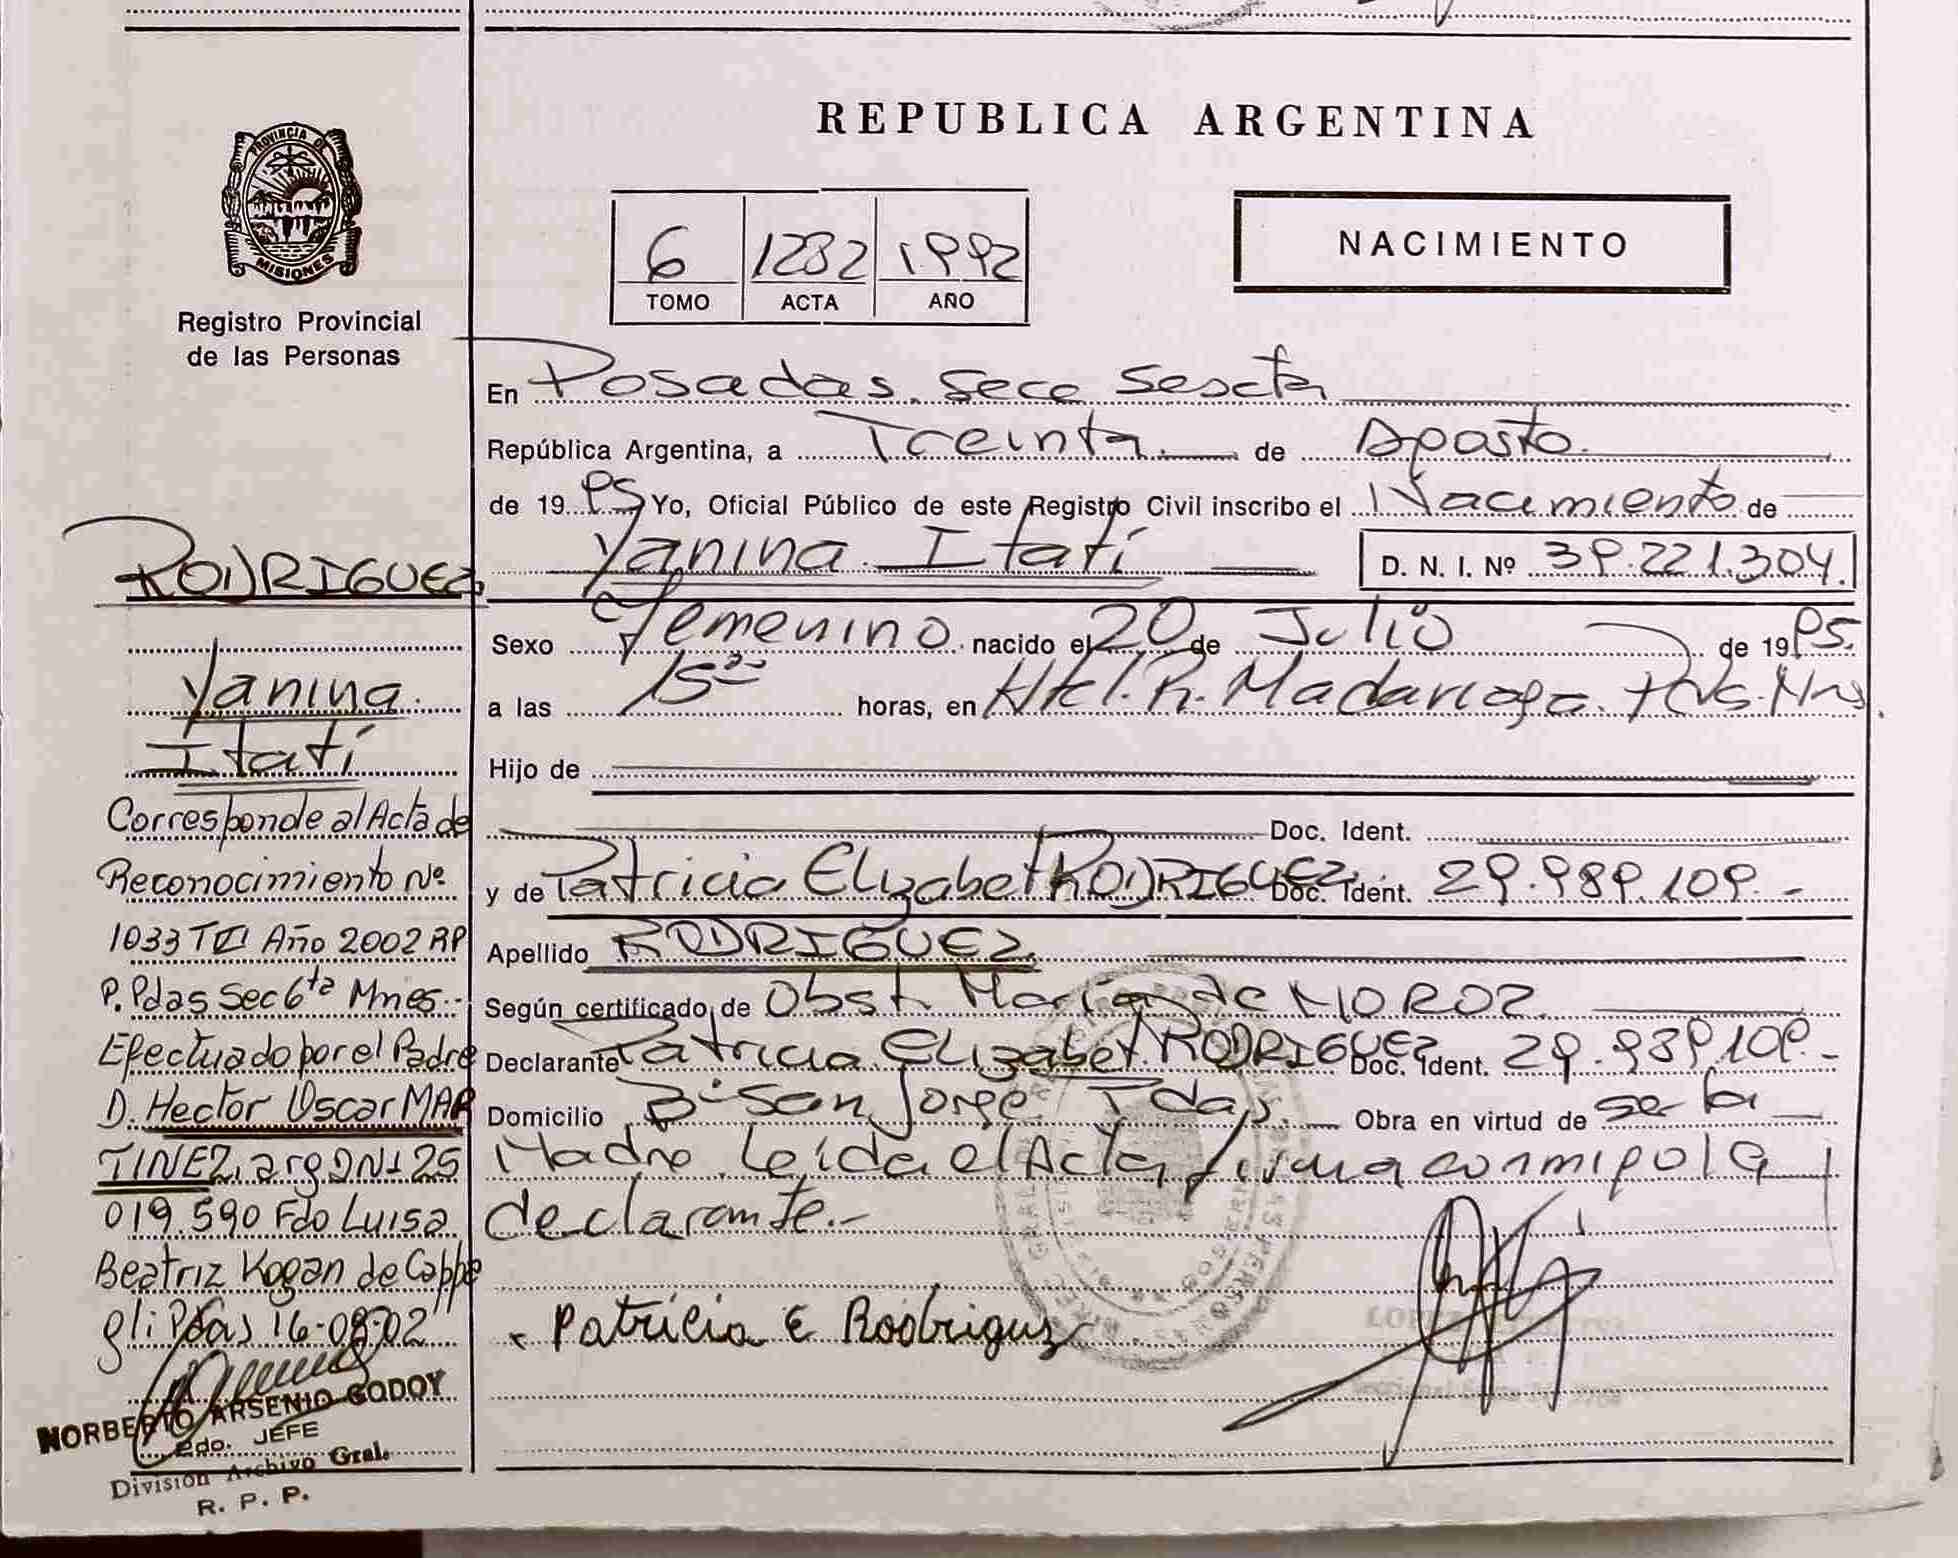 REPUBLICA ARGENTINA
PROVINCIA DE
MISIONES
Registro Provincial
de las Personas
6 1282 1992
TOMO ACTA AÑO
NACIMIENTO
En Posadas. Secc Sexta
República Argentina, a Treinta de Agosto.
de 19 95 Yo, Oficial Público de este Registro Civil inscribo el Nacimiento de
Yanina Itatí D. N. I. Nº 39.221.304.
Sexo Femenino nacido el 20 de Julio de 19 95.
a las 15 horas, en Htal. R. Madariaga. Pdas. Mns.
Hijo de
Doc. Ident.
y de Patricia Elizabet RODRIGUEZ Doc. Ident. 29.989.109.-
Apellido RODRIGUEZ
Según certificado de Obst. de MOROZ.
Declarante Patricia Elizabet RODRIGUEZ Doc. Ident. 29.989.109.-
Domicilio Bº San Jorge Pdas. Obra en virtud de ser la
Madre. Leída el Acta firma conmigo la
declarante.-
Patricia E Rodriguez
RODRIGUEZ
Yanina
Itatí
Corresponde al Acta de
Reconocimiento Nº
1033 Año 2002 RP
P. Pdas Sec 6ta Mnes.-
Efectuado por el Padre
D. Hector Oscar MAR
TINEZ, arg DNI 25
019.590 Fdo Luisa
Beatriz Kogan de Cappe
gli Pdas 16-08-02"
NORBERTO ARSENIO GODOY
2do. JEFE
División Archivo Gral.
R. P. P.